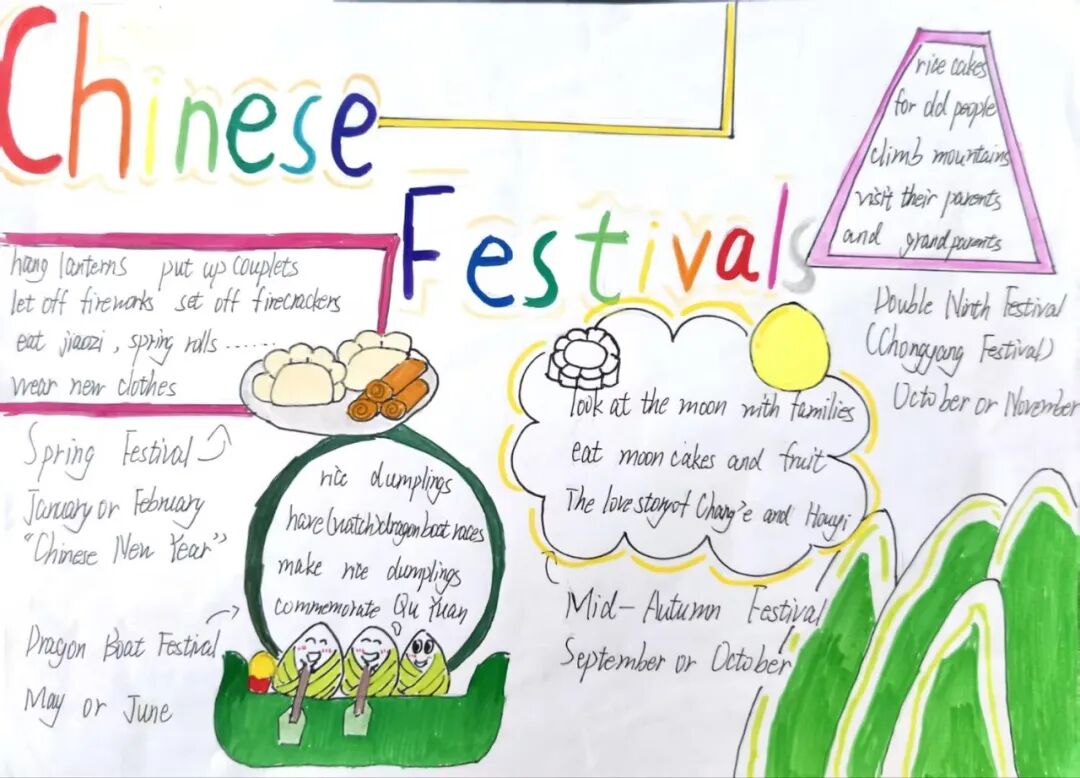 Chinese
Festivals
hang lanterns put up couplets
let off fireworks set off firecrackers
eat jiaozi, spring rolls ......
wear new clothes
Spring Festival
January or February
"Chinese New Year"
rice dumplings
have (watch) dragon boat races
make rice dumplings
commemorate Qu Yuan
Dragon Boat Festival
May or June
look at the moon with families
eat moon cakes and fruit
The love story of Chang'e and Houyi
Mid-Autumn Festival
September or October
rice cakes
for old people
climb mountains
visit their parents
and grandparents
Double Ninth Festival
(Chongyang Festival)
October or November